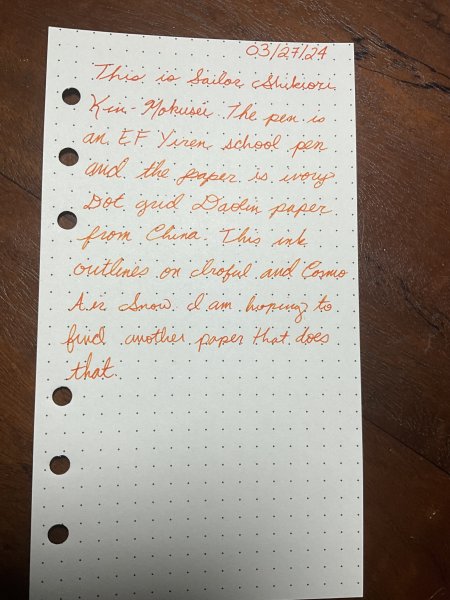 03/27/24
This is Sailor Shikiori
Kin-Mokusei. The pen is
an EF Yiren school pen
and the paper is ivory
Dot grid Daolin paper
from China. This ink
outlines on Iroful and Cosmo
Air Snow. I am hoping to
find another paper that does
that.